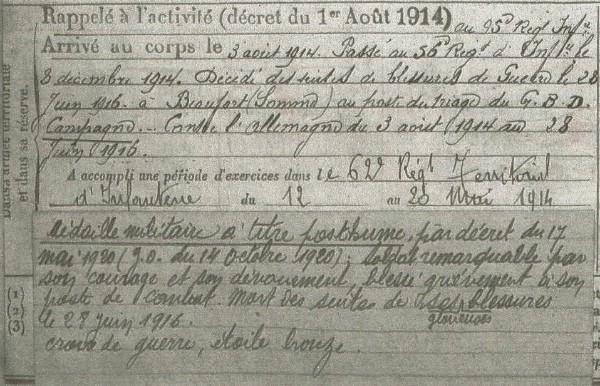 Rappelé à l'activité (décret du 1er Août 1914) au 95e Régt Infrie
Arrivé au corps le 3 août 1914. Passé au 56e Régt d'Infie le
8 décembre 1914. Décédé des suites de blessures de Guerre le 28
Juin 1916. à Beaufort (Somme) au poste de triage du G. B. D.
Campagne. - Contre l'Allemagne du 3 août 1914 au 28
Juin 1916.
A accompli une période d'exercices dans le 62e Régt Territorial
d'Infanterie du 12 au 20 Mai 1914
Médaille militaire à titre posthume, par décret du 17
mai 1920 (J.O. du 14 octobre 1920); soldat remarquable par
son courage et son dévouement, blessé grièvement à son
poste de combat. Mort des suites de ses blessures
glorieuses
le 28 juin 1916.
croix de guerre, étoile bronze.
Dans l'armée territoriale
et dans sa réserve.
(1)
(2)
(3)